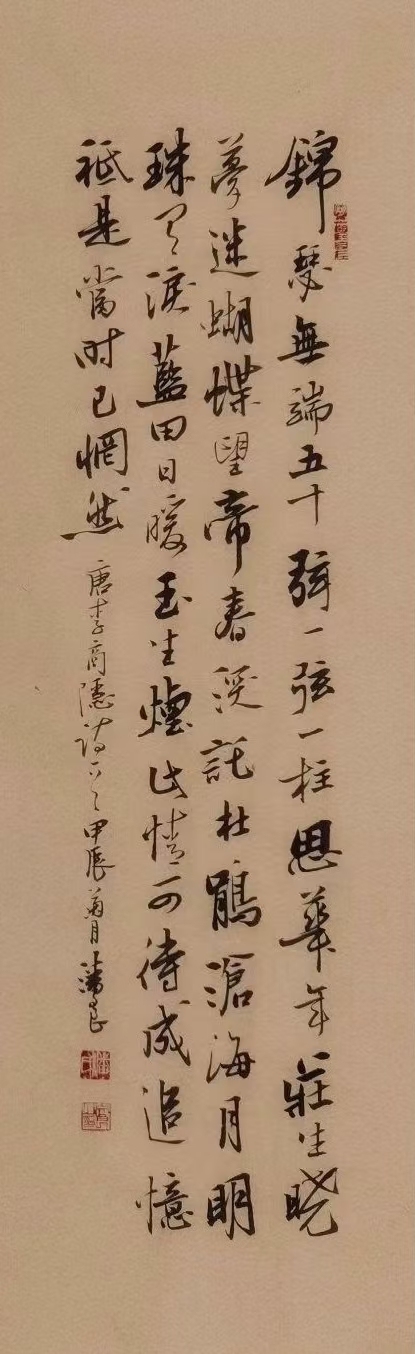 錦瑟無端五十弦一弦一柱思華年莊生晓
夢迷蝴蝶望帝春深託杜鵑滄海月明
珠有淚藍田日暖玉生煙此情可待成追憶
祗是當时已惘然
唐李商隱詩一首甲辰菊月